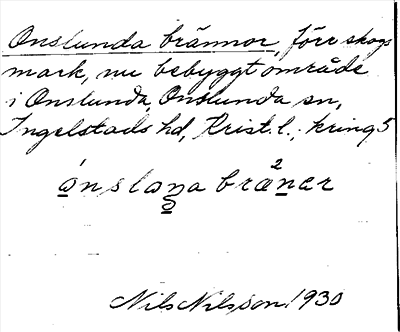 Onslunda brännor, förr skogs
mark, nu bebyggt område
i Onslunda, Onslunda sn,
Ingelstads hd, Krist. l.; kring 5
Nils Nilsson 1930